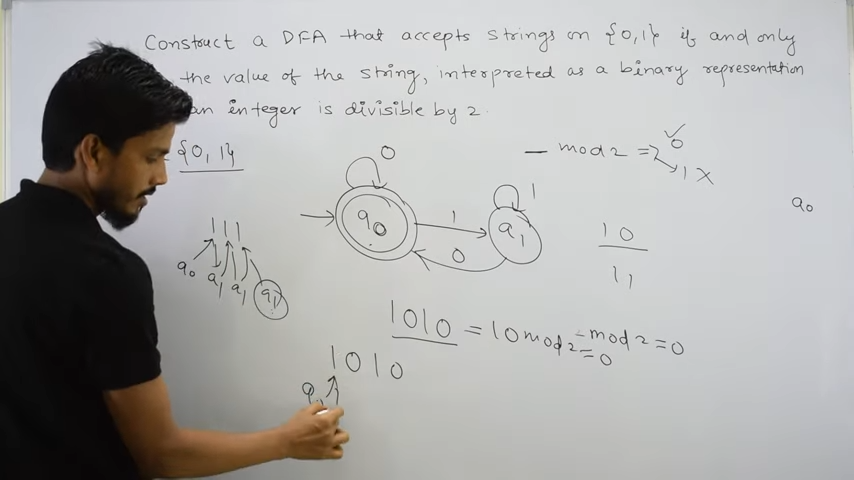 Construct a DFA that accepts strings on {0,1} if and only
the value of the string, interpreted as a binary representation
an integer is divisible by 2.
{0,1}
— mod 2 = 0 ✓
1 X
0
1
q0
1
q1
0
q0
111
q0 q1 q1 q1
10
11
1010 = 10 mod 2 = 0
- mod 2 = 0
1010
q